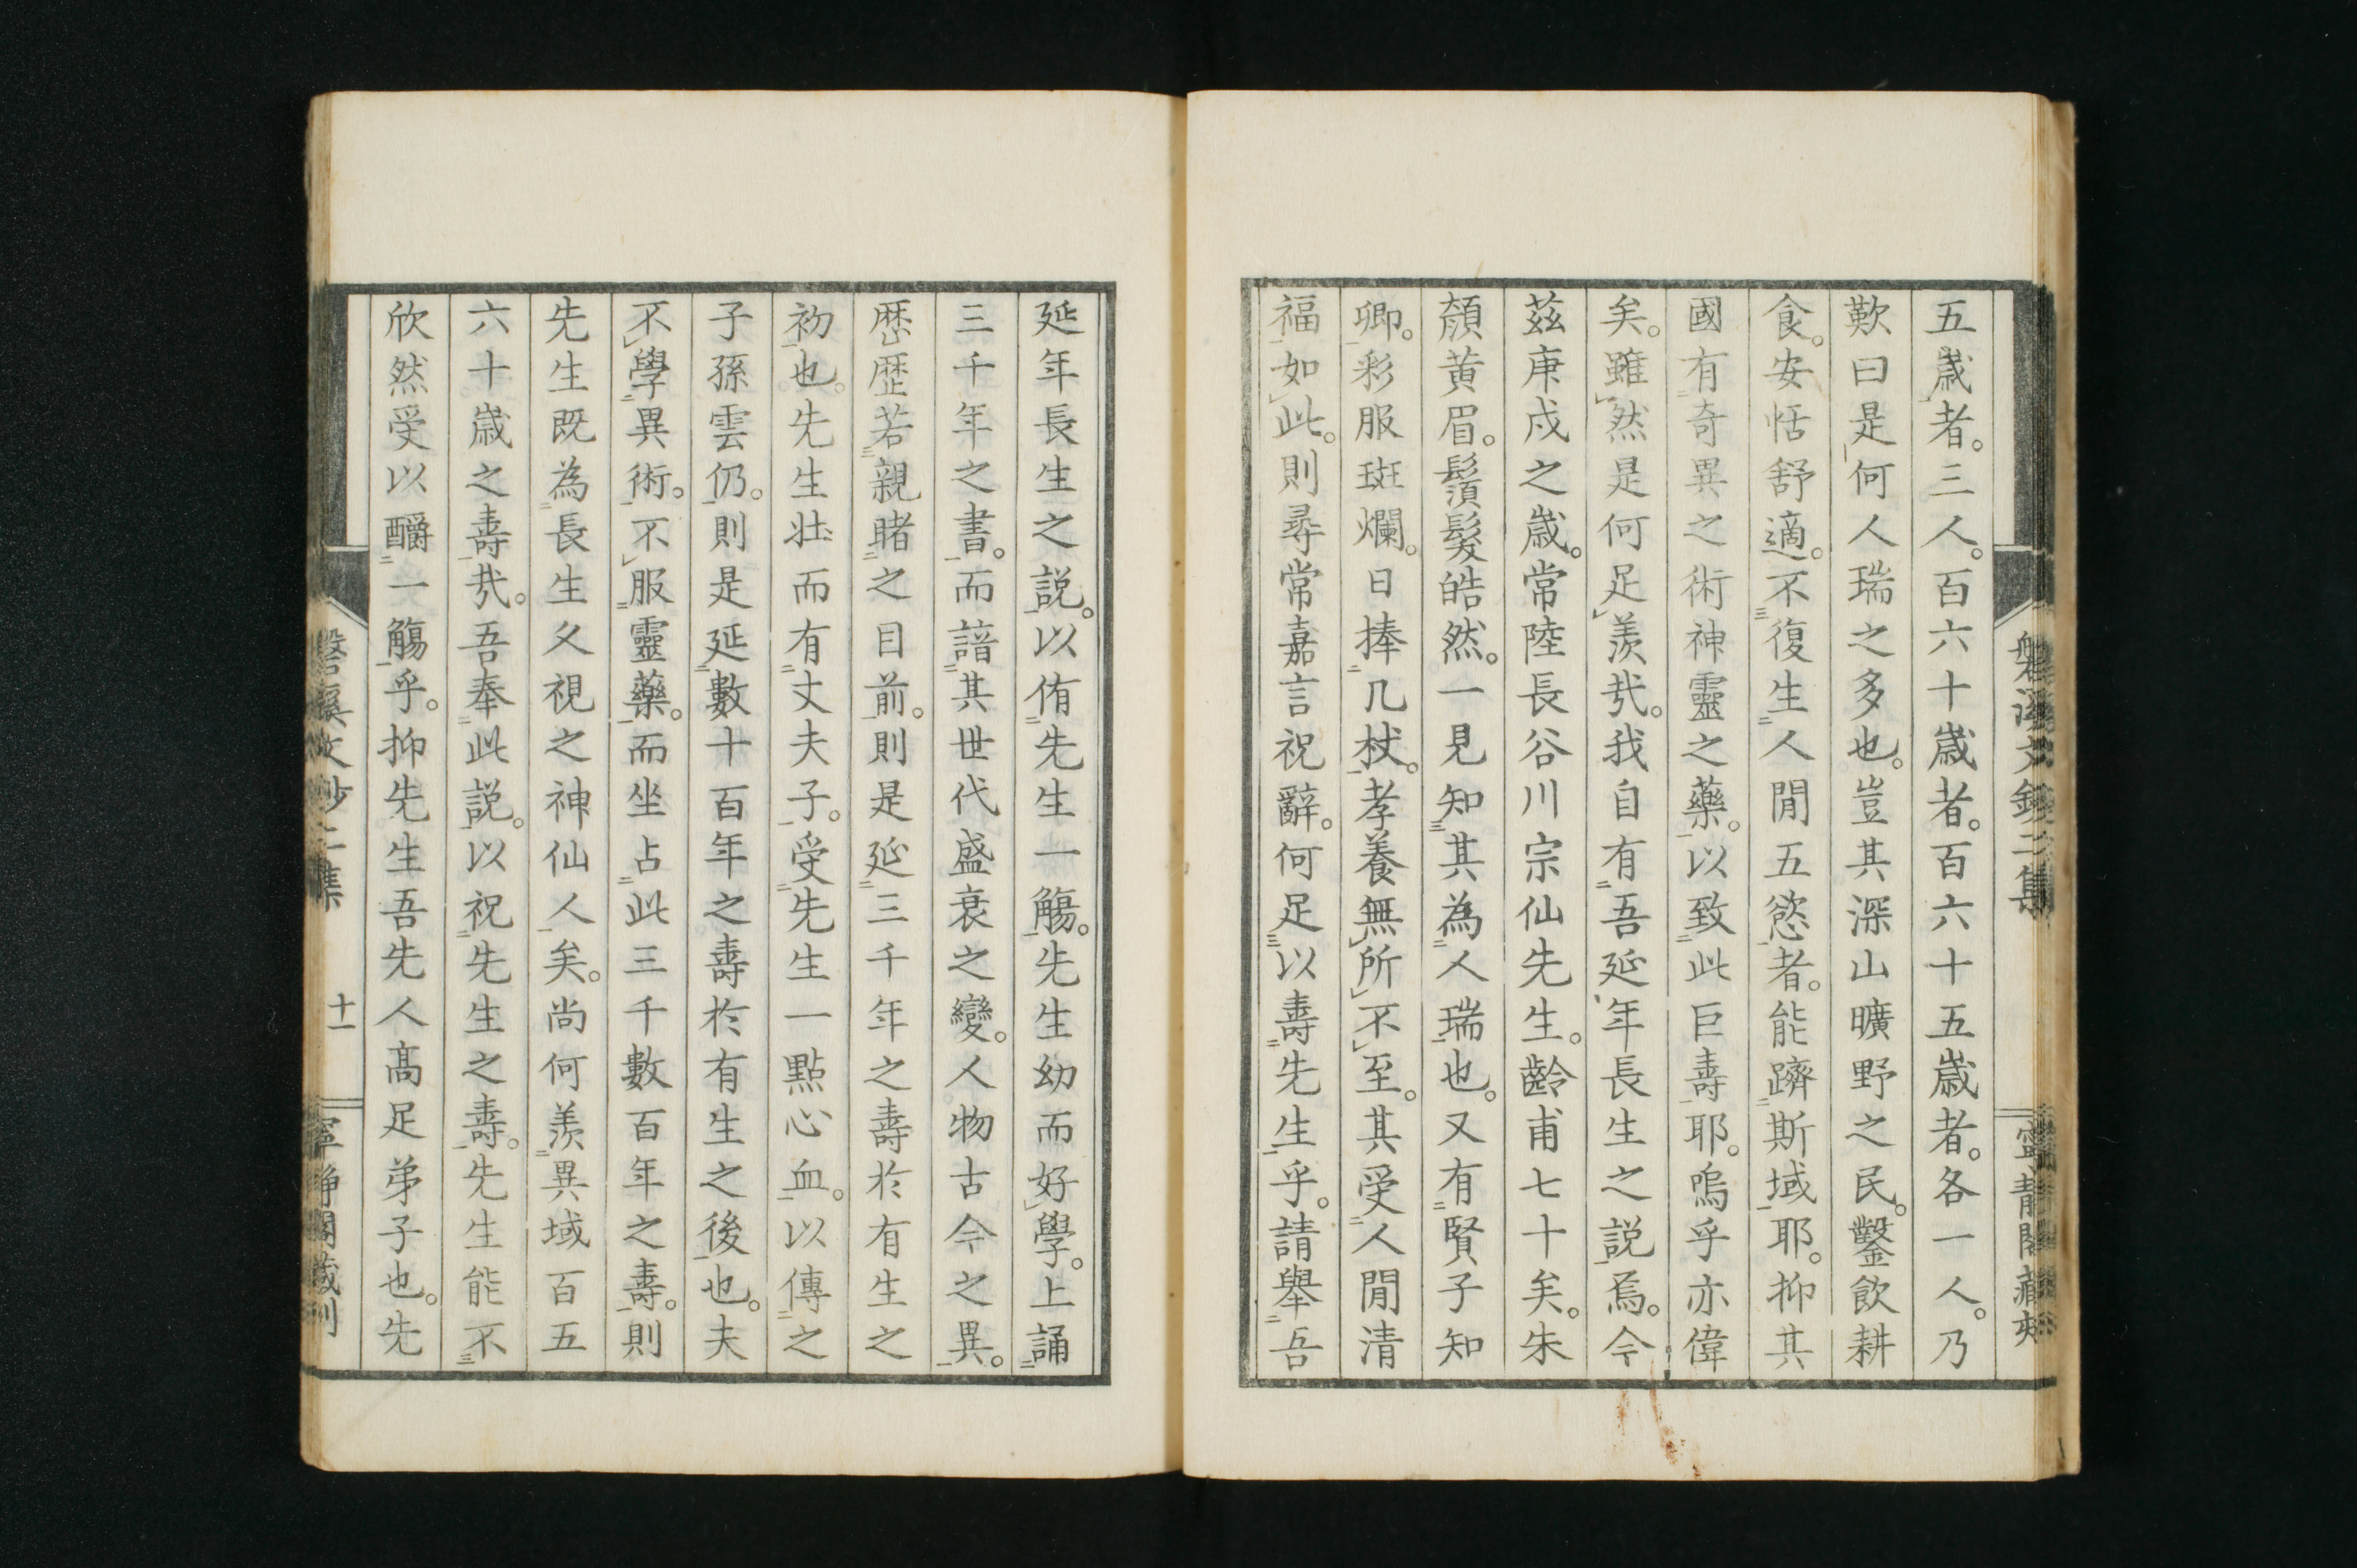 五歲者。三人。百六十歲者。百六十五歲者。各一人。乃
歎曰是何人瑞之多也。豈其深山曠野之民。鑿飲耕
食。安恬舒適。不復生人間五慾者。能躋斯域耶。抑其
國有奇異之術神靈之藥。以致此巨壽耶。嗚乎亦偉
矣。雖然是何足羨哉。我自有吾延年長生之説焉。今
茲庚戌之歲。常陸長谷川宗仙先生。齡甫七十矣。朱
顏黃眉。鬚髮皓然。一見知其為人瑞也。又有賢子知
卿。彩服斑爛。日捧几杖。孝養無所不至。其受人間清
福如此。則尋常嘉言祝辭。何足以壽先生乎。請舉吾
延年長生之説。以侑先生一觴。先生幼而好學。上誦
三千年之書。而諳其世代盛衰之變。人物古今之異。
歷歷若親睹之目前。則是延三千年之壽於有生之
初也。先生壯而有丈夫子。受先生一點心血。以傳之
子孫雲仍。則是延數十百年之壽於有生之後也。夫
不學異術。不服靈藥。而坐占此三千數百年之壽。則
先生既為長生久視之神仙人矣。尚何羨異域百五
六十歲之壽哉。吾奉此説。以祝先生之壽。先生能不
欣然受以釂一觴乎。抑先生吾先人高足弟子也。先
十一